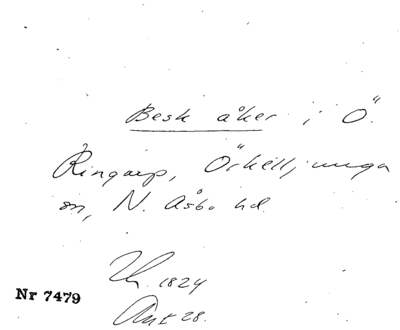 Besk åker i Ö.
Ringarp, Örkelljunga
sn, N. Åsbo hd.
1824
Nr 7479
Ant 28.